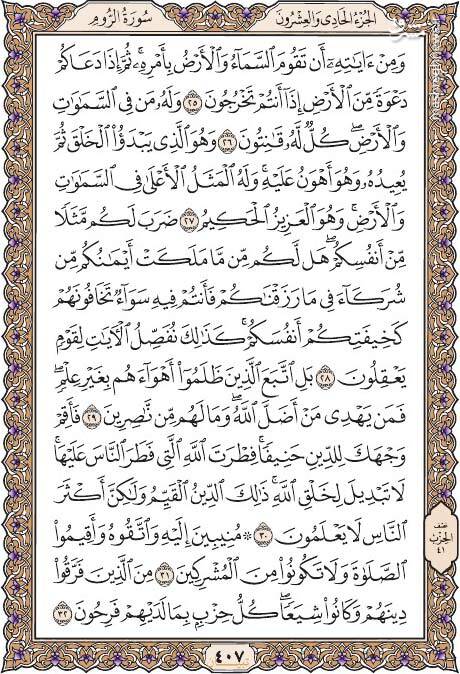 الجزء الحادى والعشرون
سورة الروم
وَمِنْ ءَايَٰتِهِۦٓ أَن تَقُومَ ٱلسَّمَآءُ وَٱلْأَرْضُ بِأَمْرِهِۦ ۚ ثُمَّ إِذَا دَعَاكُمْ
دَعْوَةً مِّنَ ٱلْأَرْضِ إِذَآ أَنتُمْ تَخْرُجُونَ ٢٥ وَلَهُۥ مَن فِى ٱلسَّمَٰوَٰتِ
وَٱلْأَرْضِ ۖ كُلٌّ لَّهُۥ قَٰنِتُونَ ٢٦ وَهُوَ ٱلَّذِى يَبْدَؤُا۟ ٱلْخَلْقَ ثُمَّ
يُعِيدُهُۥ وَهُوَ أَهْوَنُ عَلَيْهِ ۚ وَلَهُ ٱلْمَثَلُ ٱلْأَعْلَىٰ فِى ٱلسَّمَٰوَٰتِ
وَٱلْأَرْضِ ۚ وَهُوَ ٱلْعَزِيزُ ٱلْحَكِيمُ ٢٧ ضَرَبَ لَكُم مَّثَلًا
مِّنْ أَنفُسِكُمْ ۖ هَل لَّكُم مِّن مَّا مَلَكَتْ أَيْمَٰنُكُم مِّن
شُرَكَآءَ فِى مَا رَزَقْنَٰكُمْ فَأَنتُمْ فِيهِ سَوَآءٌ تَخَافُونَهُمْ
كَخِيفَتِكُمْ أَنفُسَكُمْ ۚ كَذَٰلِكَ نُفَصِّلُ ٱلْءَايَٰتِ لِقَوْمٍ
يَعْقِلُونَ ٢٨ بَلِ ٱتَّبَعَ ٱلَّذِينَ ظَلَمُوٓا۟ أَهْوَآءَهُم بِغَيْرِ عِلْمٍ ۖ
فَمَن يَهْدِى مَنْ أَضَلَّ ٱللَّهُ ۖ وَمَا لَهُم مِّن نَّٰصِرِينَ ٢٩ فَأَقِمْ
وَجْهَكَ لِلدِّينِ حَنِيفًا ۚ فِطْرَتَ ٱللَّهِ ٱلَّتِى فَطَرَ ٱلنَّاسَ عَلَيْهَا ۚ
لَا تَبْدِيلَ لِخَلْقِ ٱللَّهِ ۚ ذَٰلِكَ ٱلدِّينُ ٱلْقَيِّمُ وَلَٰكِنَّ أَكْثَرَ
ٱلنَّاسِ لَا يَعْلَمُونَ ٣٠ ۞ مُنِيبِينَ إِلَيْهِ وَٱتَّقُوهُ وَأَقِيمُوا۟
ٱلصَّلَوٰةَ وَلَا تَكُونُوا۟ مِنَ ٱلْمُشْرِكِينَ ٣١ مِنَ ٱلَّذِينَ فَرَّقُوا۟
دِينَهُمْ وَكَانُوا۟ شِيَعًا ۖ كُلُّ حِزْبٍۭ بِمَا لَدَيْهِمْ فَرِحُونَ ٣٢
الحزب
٤١
٤٠٧